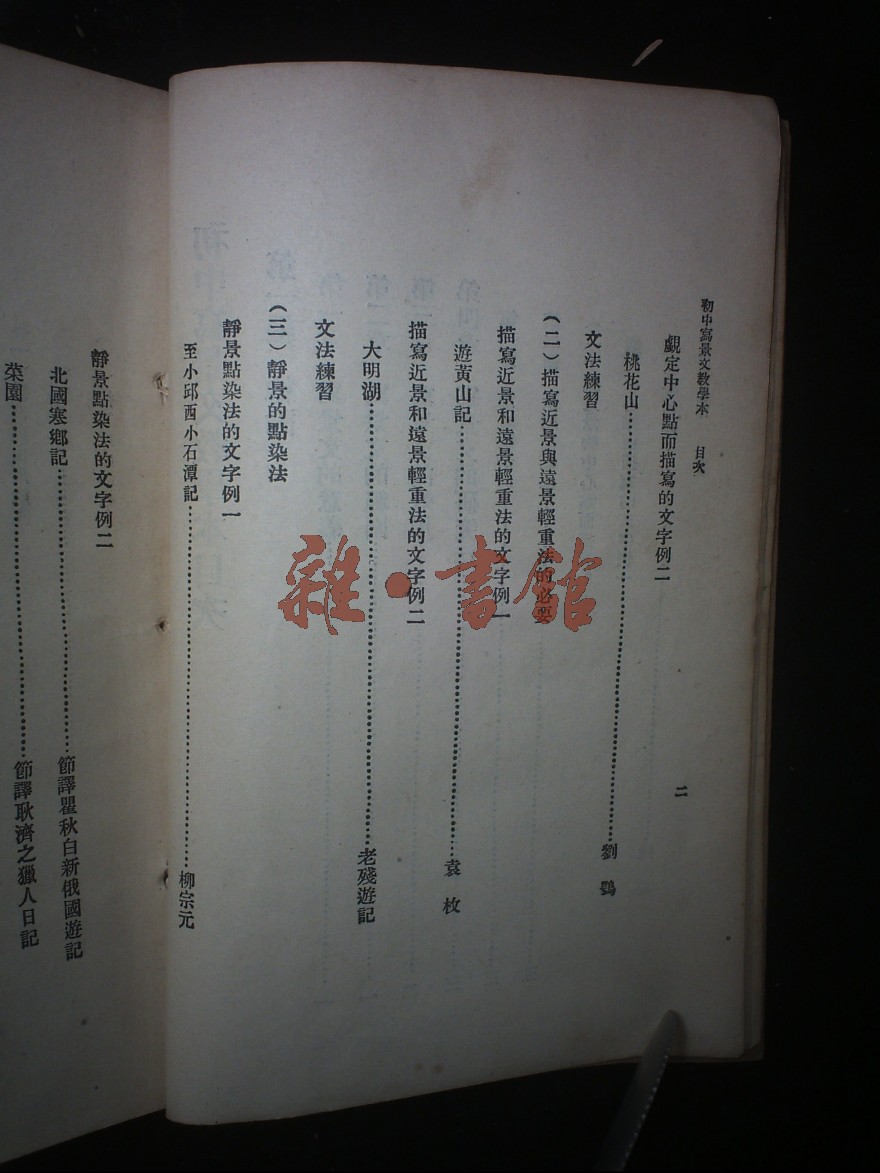 初中寫景文教學本　目次
二
覷定中心點而描寫的文字例二
桃花山……劉鶚
文法練習
(二)描寫近景與遠景輕重法的必要
描寫近景和遠景輕重法的文字例一
遊黃山記……袁枚
描寫近景和遠景輕重法的文字例二
大明湖……老殘遊記
文法練習
(三)靜景的點染法
靜景點染法的文字例一
至小邱西小石潭記……柳宗元
靜景點染法的文字例二
北國寒鄉記……節譯瞿秋白新俄國遊記
菜園……節譯耿濟之獵人日記
雜·書館